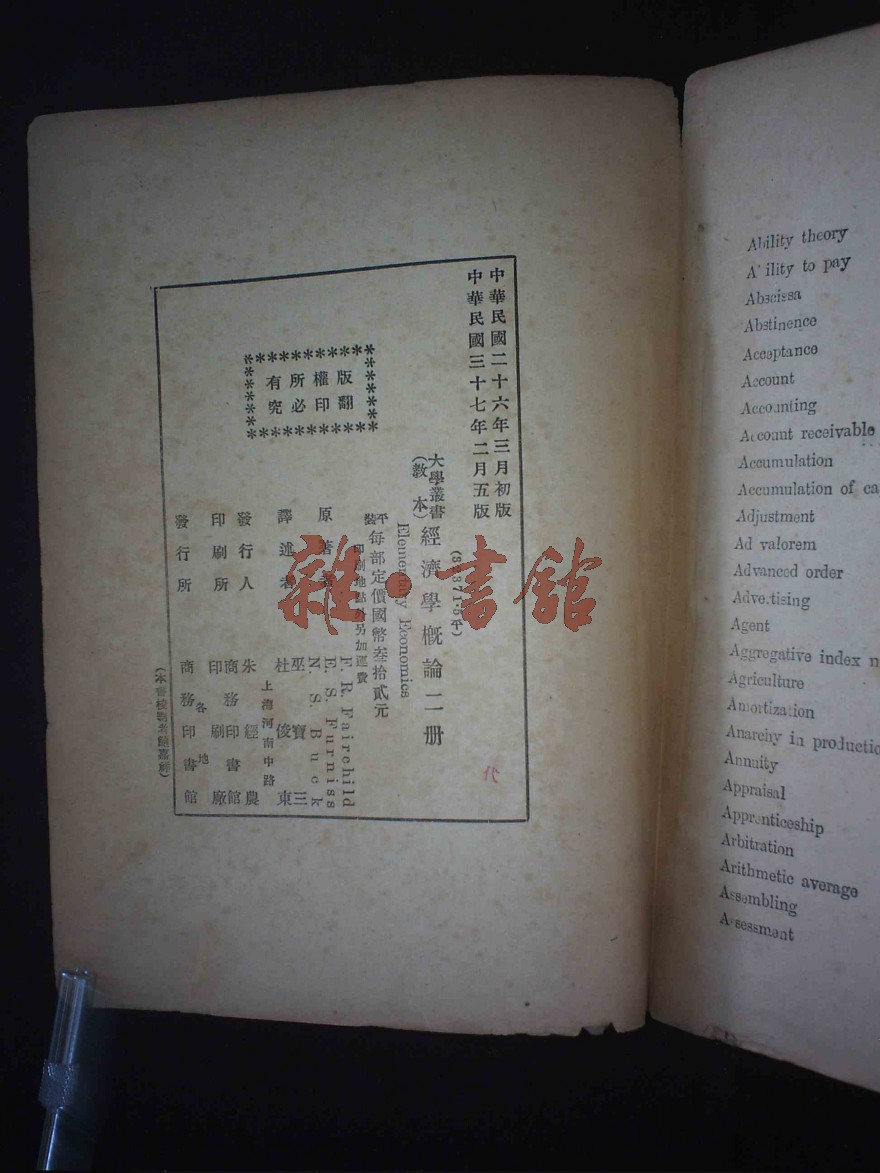 中華民國二十六年三月初版
中華民國三十七年二月五版
(教本)
大學叢書
經濟學概論二册
Elementary Economics
平裝
每部定價國幣叁拾貳元
印刷地點外另加運費
版權所有
翻印必究
原著者
F. R. Fairchild
E. S. Furniss
N. S. Buck
譯述者
巫寶三
杜俊東
上海河南中路
發行人
朱經農
印刷所
商務印書館
印刷廠
發行所
各地
商務印書館
雜·書館
Ability theory
Ability to pay
Abscissa
Abstinence
Acceptance
Account
Accounting
Account receivable
Accumulation
Accumulation of ca
Adjustment
Ad valorem
Advanced order
Advertising
Agent
Aggregative index n
Agriculture
Amortization
Anarchy in productio
Annuity
Appraisal
Apprenticeship
Arbitration
Arithmetic average
Assembling
Assessment